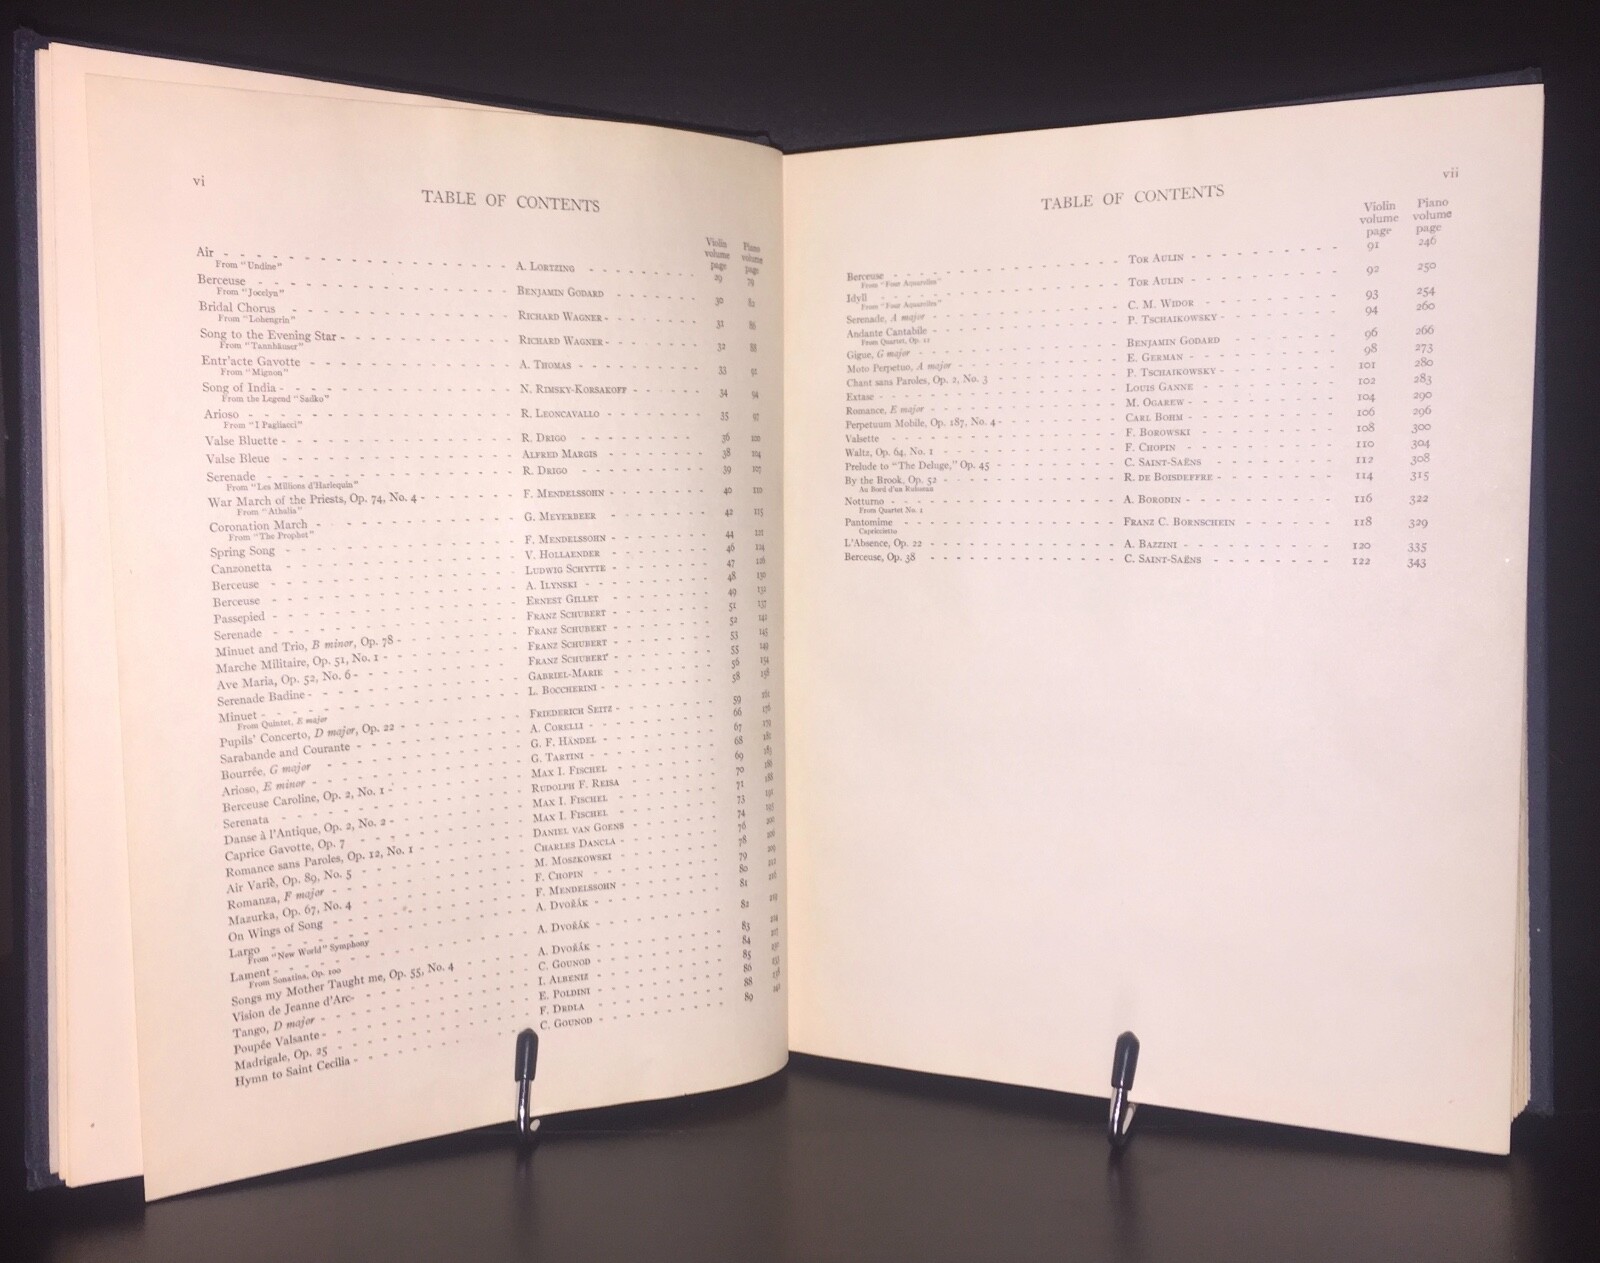 vi
TABLE OF CONTENTS
Violin volume page
Piano volume page
Air - A. Lortzing - 29 79
From "Undine"
Berceuse - Benjamin Godard - 30 82
From "Jocelyn"
Bridal Chorus - Richard Wagner - 31 86
From "Lohengrin"
Song to the Evening Star - Richard Wagner - 32 88
From "Tannhäuser"
Entr'acte Gavotte - A. Thomas - 33 91
From "Mignon"
Song of India - N. Rimsky-Korsakoff - 34 94
From the Legend "Sadko"
Arioso - R. Leoncavallo - 35 97
From "I Pagliacci"
Valse Bluette - R. Drigo - 36 100
Valse Bleue - Alfred Margis - 38 104
Serenade - R. Drigo - 39 107
From "Les Millions d'Harlequin"
War March of the Priests, Op. 74, No. 4 - F. Mendelssohn - 40 110
From "Athalia"
Coronation March - G. Meyerbeer - 42 115
From "The Prophet"
Spring Song - F. Mendelssohn - 44 121
Canzonetta - V. Hollaender - 46 124
Berceuse - Ludwig Schytte - 47
Berceuse - A. Ilynski - 48 130
Passepied - Ernest Gillet - 49
Serenade - Franz Schubert - 51 137
Minuet and Trio, B minor, Op. 78 - Franz Schubert - 52
Marche Militaire, Op. 51, No. 1 - Franz Schubert - 53 145
Ave Maria, Op. 52, No. 6 - Franz Schubert - 55 149
Serenade Badine - Gabriel-Marie - 56 154
Minuet - L. Boccherini - 58 158
From Quintet, E major
Pupils' Concerto, D major, Op. 22 - Friederich Seitz - 59 161
Sarabande and Courante - A. Corelli - 66 176
Bourrée, G major - G. F. Händel - 67 179
Arioso, E minor - G. Tartini - 68 181
Berceuse Caroline, Op. 2, No. 1 - Max I. Fischel - 69 183
Serenata - Rudolph F. Reisa - 70 186
Danse à l'Antique, Op. 2, No. 2 - Max I. Fischel - 71 188
Caprice Gavotte, Op. 7 - Max I. Fischel - 73 191
Romance sans Paroles, Op. 12, No. 1 - Daniel van Goens - 74 195
Air Varié, Op. 89, No. 5 - Charles Dancla - 76 200
Romanza, F major - M. Moszkowski - 78 206
Mazurka, Op. 67, No. 4 - F. Chopin - 79 209
On Wings of Song - F. Mendelssohn - 80 212
Largo - A. Dvořák - 81 216
From "New World" Symphony
Lament - A. Dvořák - 82 219
From Sonatina, Op. 100
Songs my Mother Taught me, Op. 55, No. 4 - A. Dvořák - 83 224
Vision de Jeanne d'Arc - C. Gounod - 84 227
Tango, D major - I. Albeniz - 85 230
Poupée Valsante - E. Poldini - 86
Madrigale, Op. 25 - F. Drdla - 88 238
Hymn to Saint Cecilia - C. Gounod - 89
vii
TABLE OF CONTENTS
Violin volume page
Piano volume page
Berceuse - Tor Aulin - 91 246
From "Four Aquarelles"
Idyll - Tor Aulin - 92 250
From "Four Aquarelles"
Serenade, A major - C. M. Widor - 93 254
Andante Cantabile - P. Tschaikowsky - 94 260
From Quartet, Op. 11
Gigue, G major - Benjamin Godard - 96 266
Moto Perpetuo, A major - E. German - 98 273
Chant sans Paroles, Op. 2, No. 3 - P. Tschaikowsky - 101 280
Extase - Louis Ganne - 102 283
Romance, E major - M. Ogarew - 104 290
Perpetuum Mobile, Op. 187, No. 4 - Carl Bohm - 106 296
Valsette - F. Borowski - 108 300
Waltz, Op. 64, No. 1 - F. Chopin - 110 304
Prelude to "The Deluge," Op. 45 - C. Saint-Saëns - 112 308
By the Brook, Op. 52 - R. de Boisdeffre - 114 315
Au Bord d'un Ruisseau
Notturno - A. Borodin - 116 322
From Quartet No. 1
Pantomime - Franz C. Bornschein - 118 329
Capriccietto
L'Absence, Op. 22 - A. Bazzini - 120 335
Berceuse, Op. 38 - C. Saint-Saëns - 122 343